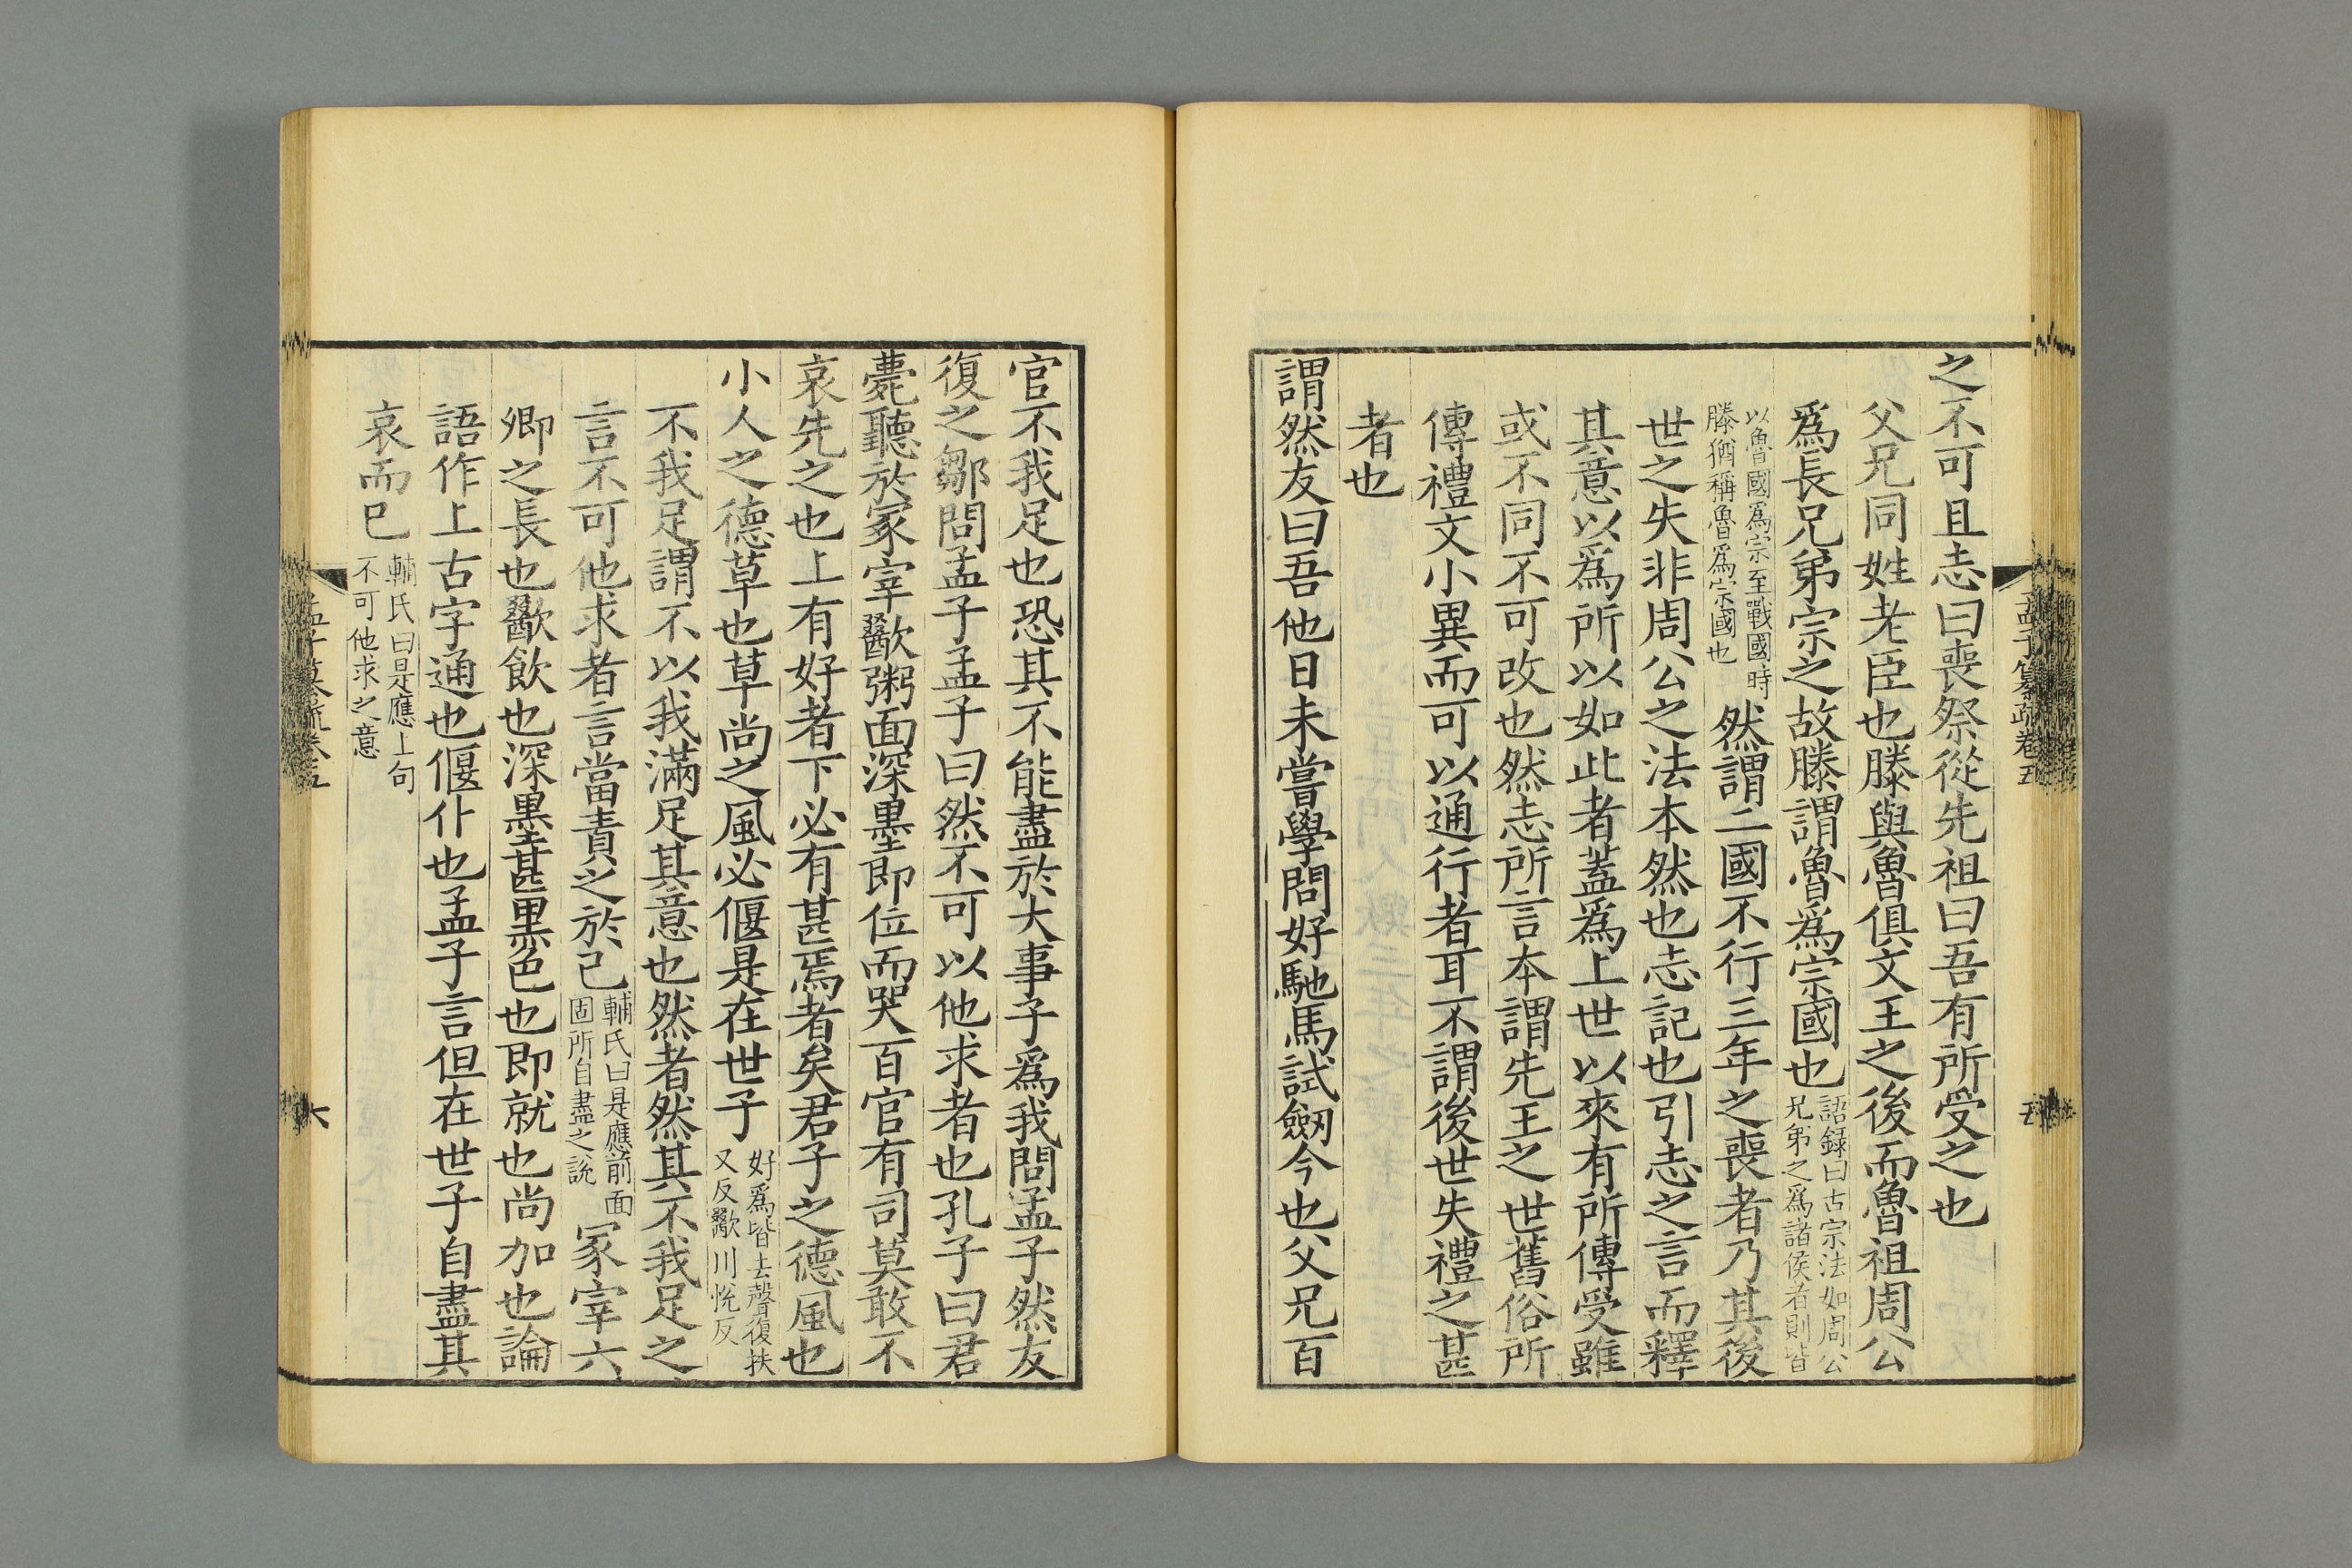 之不可且志曰喪祭從先祖曰吾有所受之也
父兄同姓老臣也滕與魯俱文王之後而魯祖周公
爲長兄弟宗之故滕謂魯爲宗國也語錄曰古宗法如周公兄弟之爲諸侯者則皆
以魯國爲宗至戰國時滕猶稱魯爲宗國也然謂二國不行三年之喪者乃其後
世之失非周公之法本然也志記也引志之言而釋
其意以爲所以如此者蓋爲上世以來有所傳受雖
或不同不可改也然志所言本謂先王之世舊俗所
傳禮文小異而可以通行者耳不謂後世失禮之甚
者也
謂然友曰吾他日未嘗學問好馳馬試劒今也父兄百
孟子纂疏卷五
五
官不我足也恐其不能盡於大事子爲我問孟子然友
復之鄒問孟子孟子曰然不可以他求者也孔子曰君
薨聽於冢宰歠粥面深墨即位而哭百官有司莫敢不
哀先之也上有好者下必有甚焉者矣君子之德風也
小人之德草也草尚之風必偃是在世子好爲皆去聲復扶又反歠川悅反
不我足謂不以我滿足其意也然者然其不我足之
言不可他求者言當責之於己輔氏曰是應前面固所自盡之說冢宰六
卿之長也歠飲也深墨甚黑色也即就也尚加也論
語作上古字通也偃仆也孟子言但在世子自盡其
哀而已輔氏曰是應上句不可他求之意
孟子纂疏卷五
六